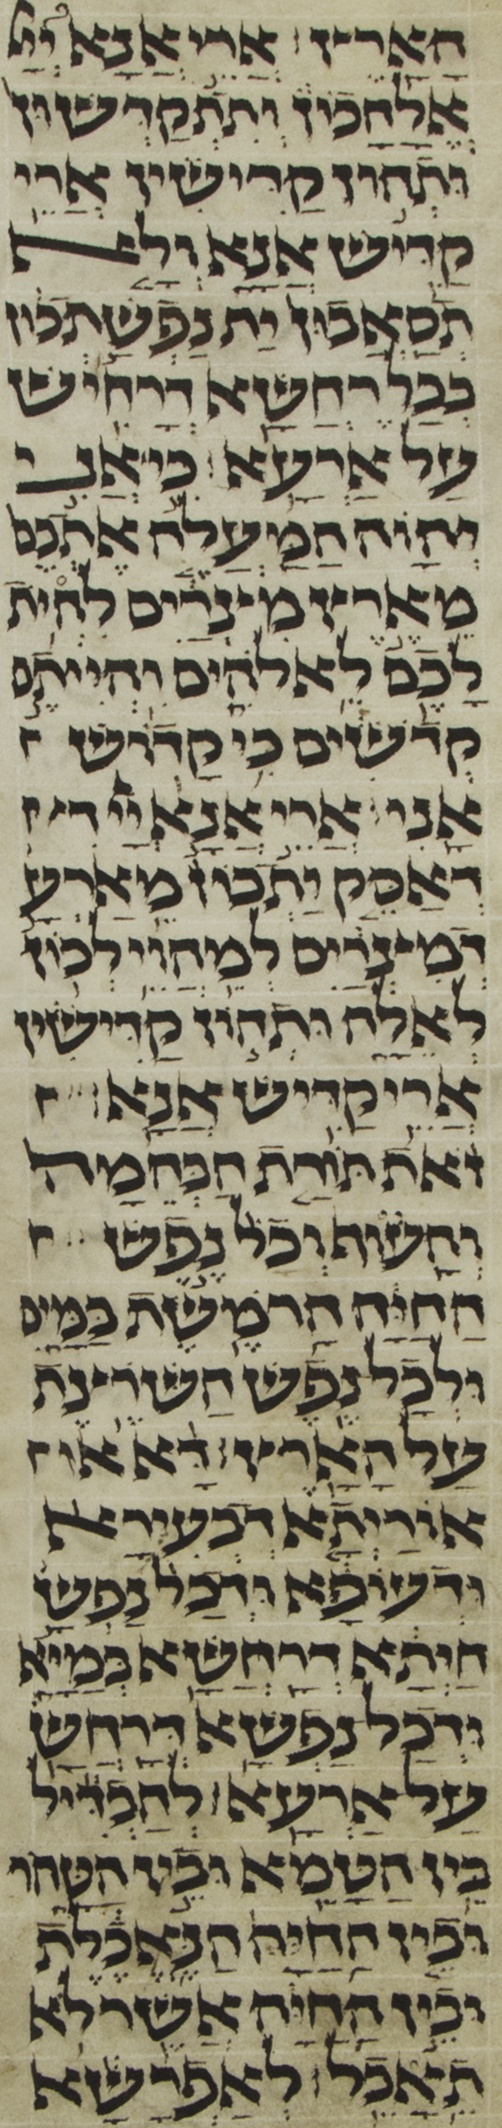 הארץ׃ ארי אנא ייי
אלהכון ותתקדשון
ותהון קדישין ארי
קדיש אנא ולא
תסאבון ית נפשתכון
בכל רחשא דרחיש
על ארעא׃ כי אני
יהוה המעלה אתכם
מארץ מצרים להית
לכם לאלהים והייתם
קדשים כי קדוש
אני׃ ארי אנא ייי
דאסק יתכון מארעא
דמצרים למהוי לכון
לאלה ותהון קדישין
ארי קדיש אנא׃
זאת תורת הבהמה
והעוף וכל נפש
החיה הרמשת במים
ולכל נפש השרצת
על הארץ׃ דא
אוריתא דבעירא
ודעופא ודכל נפש
חיתא דרחשא במיא
ודכל נפשא דרחש
על ארעא׃ להבדיל
בין הטמא ובין הטהר
ובין החיה הנאכלת
ובין החיה אשר לא
תאכל׃ לאפרשא